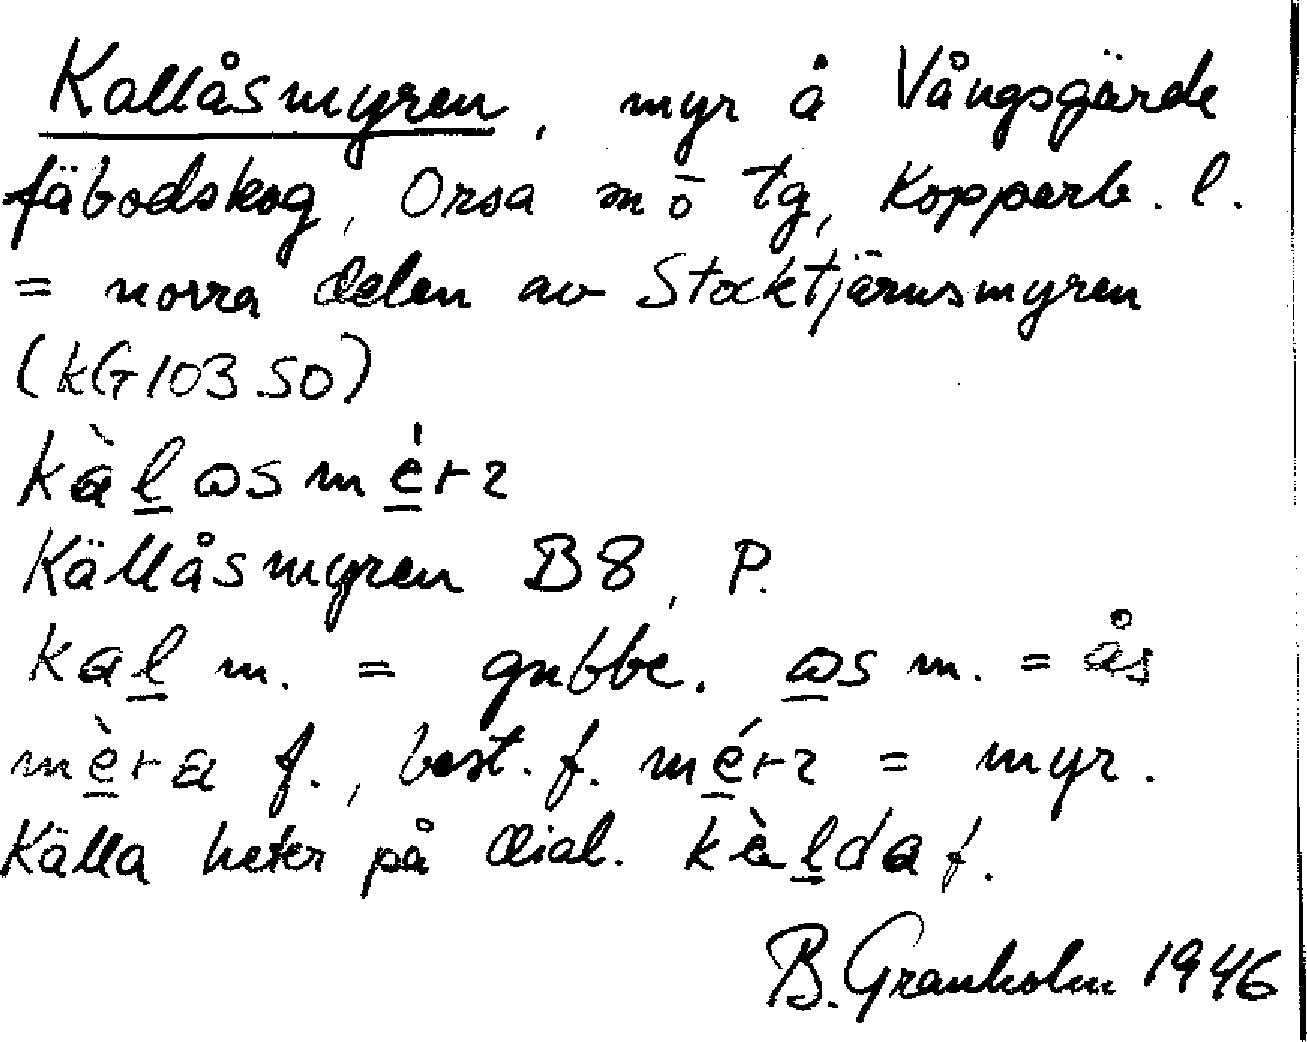 Kallåsmyren, myr å Vångsgärde
fäbodskog, Orsa sn ö tg, Kopparb. l.
= norra delen av Stocktjärnsmyren
(kG 103.50)
kàl̲ ɷsmé̲rɿ
Källåsmyren B8, P.
kal̲ m. = gubbe. ɷ̲s m. = ås
mè̲ra f., best. f. mé̲rɿ = myr.
Källa heter på dial. kæ̀l̲da f.
B. Granholm 1946